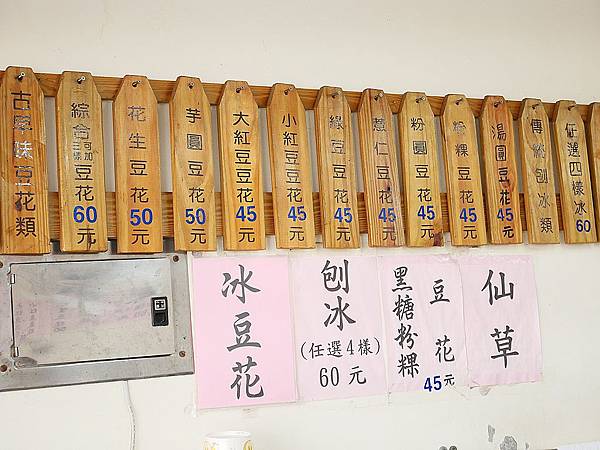 古早味豆花類
綜合可加三樣豆花60元
花生豆花50元
芋圓豆花50元
大紅豆豆花45元
小紅豆豆花45元
綠豆豆花45元
薏仁豆花45元
粉圓豆花45元
粉粿豆花45元
湯圓豆花45元
傳統刨冰類
任選四樣冰60
冰豆花
刨冰
(任選4樣)
60元
黑糖粉粿
豆花
45元
仙草